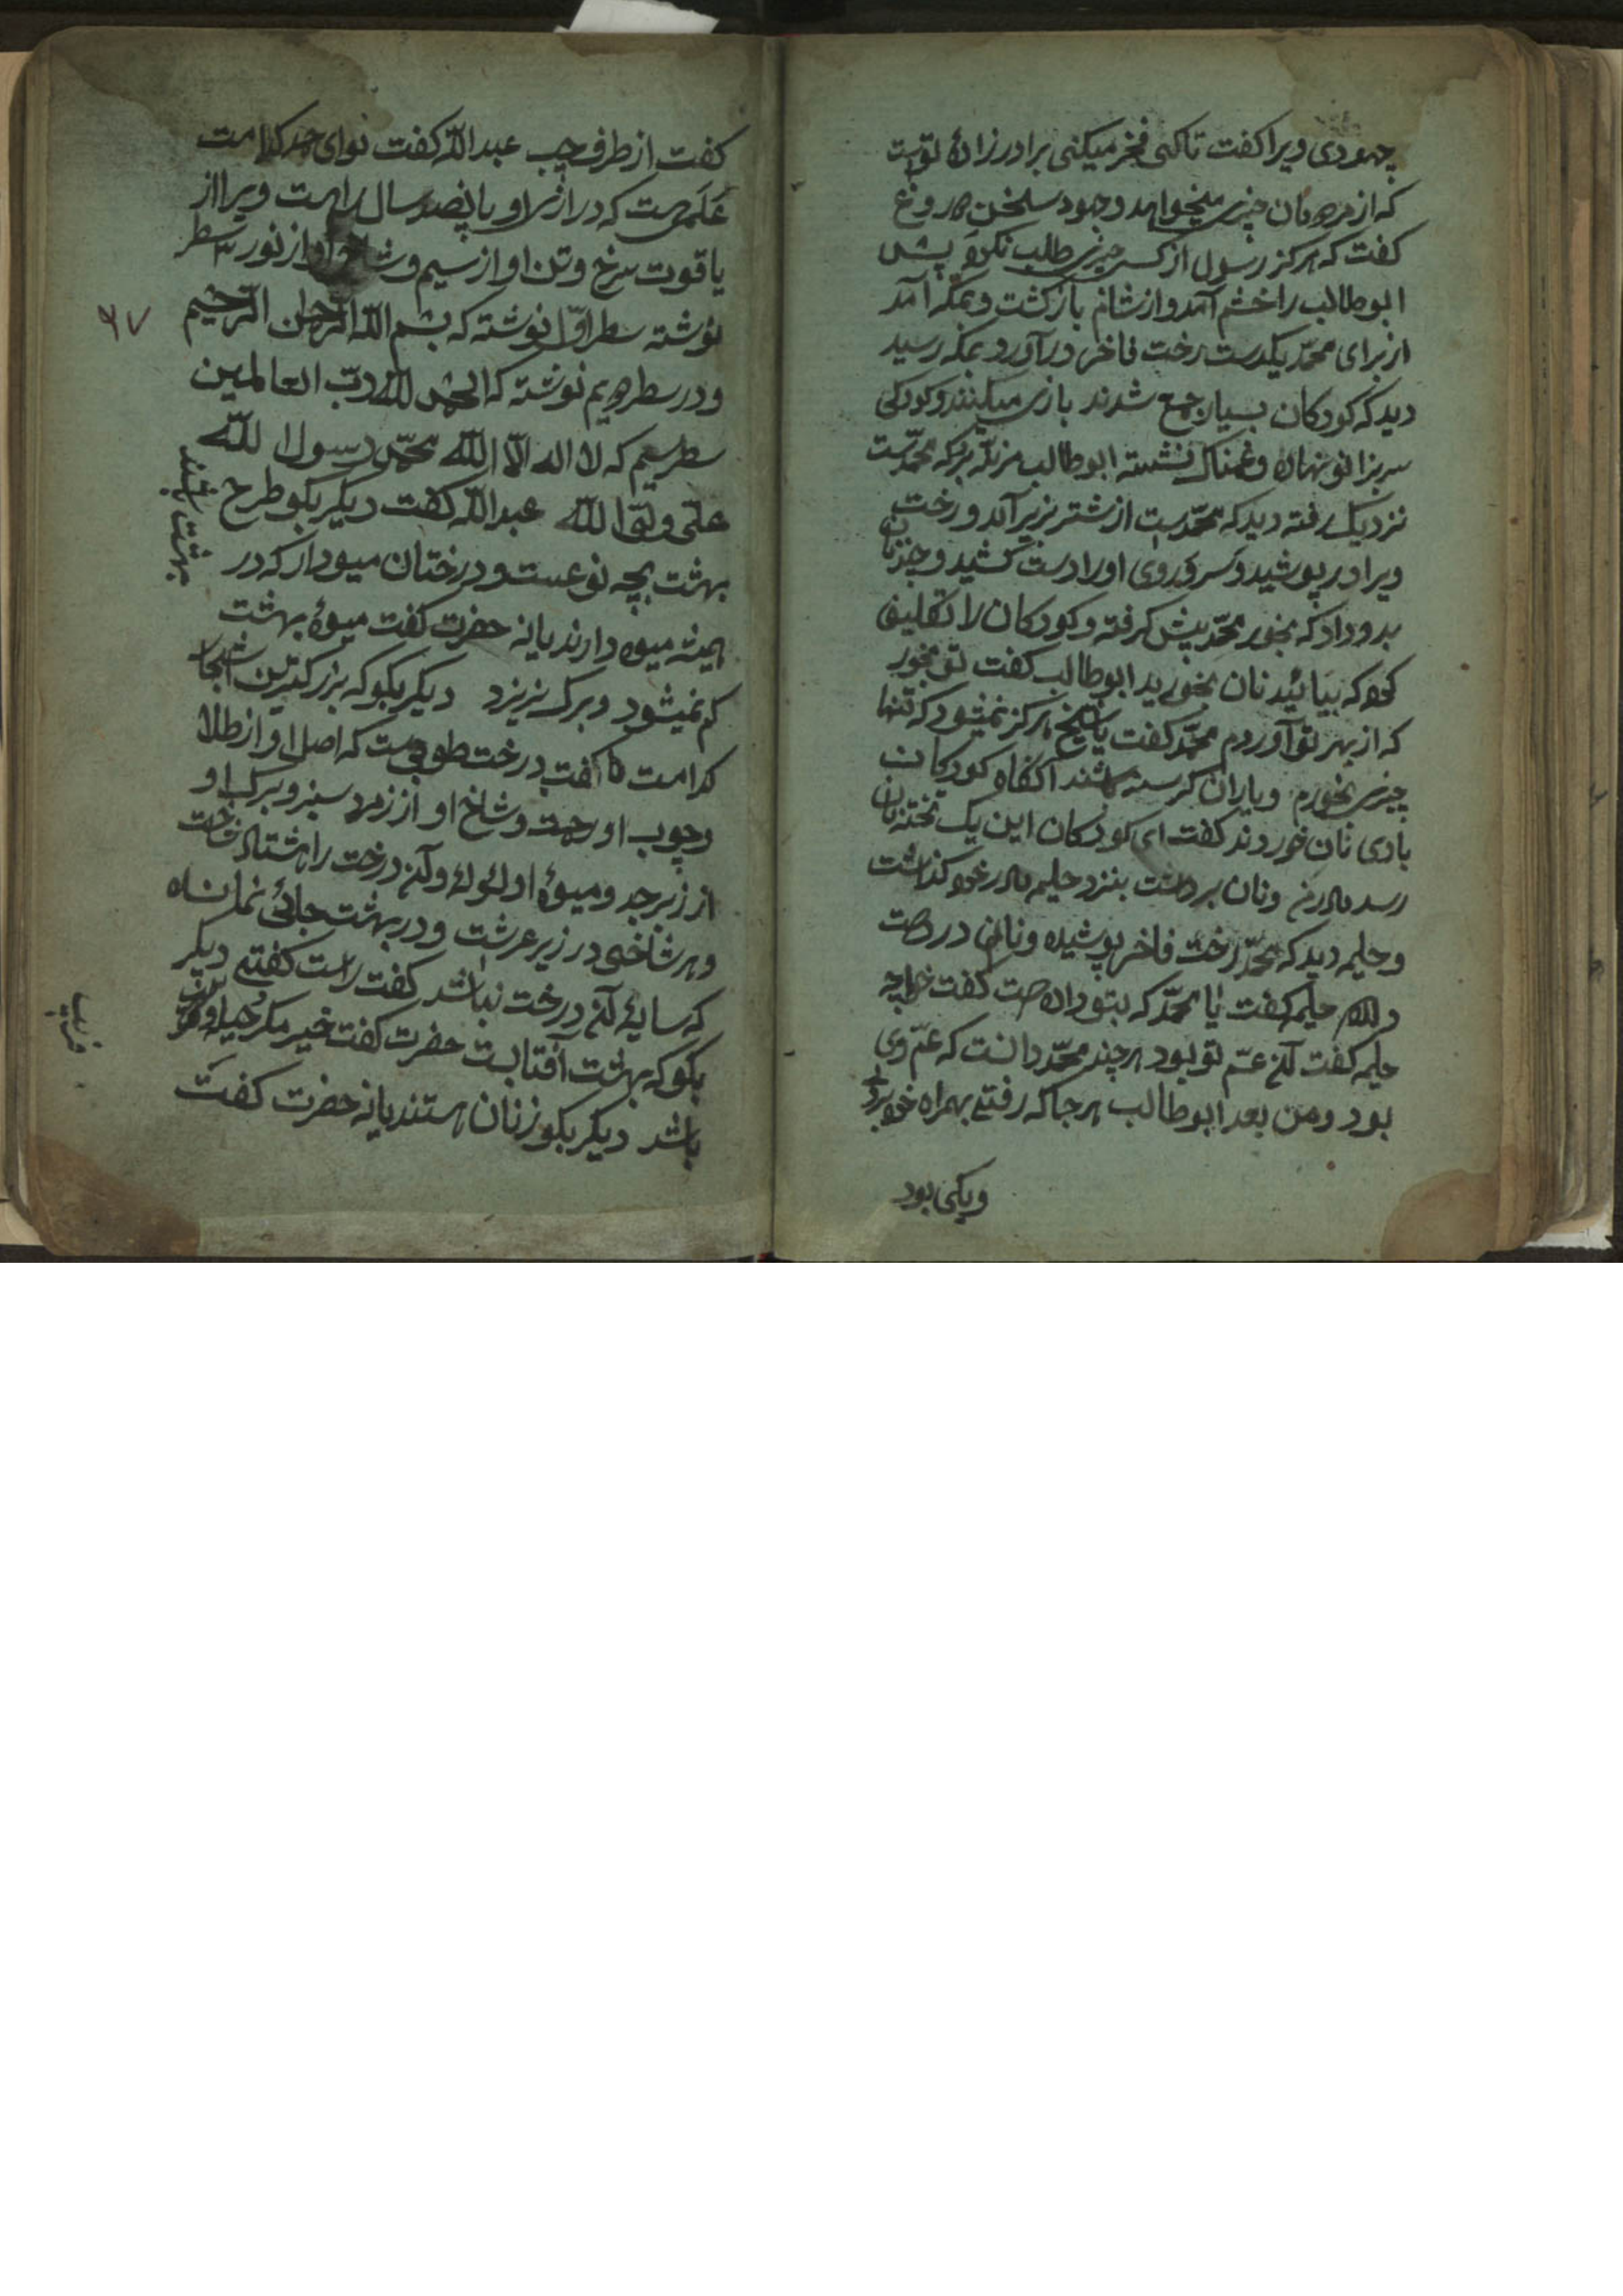 جهودی ویرا کفت تا کی فخر میکنی برادرزادۀ تویست
که از مردمان چیزی میخواهد و جهود سخن دروغ
کفت که هرکز رسول از کسی چیزی طلب نکرد پس
ابوطالب را خشم آمد و از شام بازکشت و بمکه آمد
از برای محمّد یکدست رخت فاخر در آورد بمکه رسید
دید که کودکان بسیار جمع شدند بازی میکنند و کودکی
سر بزانو نهاده و غمناک نشسته ابوطالب کی محمّدست
نزدیک رفته دید که محمّدست از شتر بزیر آمد و رخت
ویرا در پوشید و سر و روی او را دست کشید و چند نان
بدو داد که بخور محمّد پیش کرفته و کودکان را تکلیف
کرد که بیائید نان بخورید ابوطالب کفت تو بخور
که از بهر تو آوردم محمّد کفت یا شیخ هرکز نمیشود که تنها
چیزی بخورم و یاران کرسنه باشند آنکاه کودکان
با وی نان خوردند کفت ای کودکان این یک تخته نان
رسد مادر من و نان برداشت بنزد حلیمه مادر خود کذاشت
و حلیمه دید که محمّد رخت فاخر پوشیده و نان در دست
دارد حلیمه کفت یا محمّد که بتو داده است کفت خواجه
حلیمه کفت آن عمّ تو بود هرچند محمّد دانست که عمّ وی
بود و من بعد ابوطالب هرجا که رفتی بهمراه خود بردی
ویکی بود
کفت از طرف چپ عبد اللّه کفت نوای حمد کدامست
عَلَمی است که درازی او پانصد سال راهست و ویرا از
یاقوت سرخ و تن او از سیم و شاخ او از نور ۳ سطر
نوشته سطر اوّل نوشته که بسم اللّه الرّحمن الرّحیم
و در سطر دویم نوشته که الحمد للّه ربّ العالمین
سطر سیم که لا اله الّا اللّه محمّد رسول اللّه
علی ولی اللّه عبد اللّه کفت دیکر بکو طرح
بهشت بچه نوعست و درختان میوه‌دار که در
بهشت باشند
همیشه میوه دارند یا نه حضرت کفت میوۀ بهشت
کم نمیشود و برک نریزد دیکر بکو که بزرکترین اشجار
کدامست کفت درخت طوبی است که اصل او از طلا
و چوب او و شاخ او از زمرد سبز و برک او
از زبرجد و میوۀ او لؤلؤ و آن درخت را هشتاد شاخست
و هر شاخی در زیر عرشست و در بهشت جائی نمانده
که سایۀ آن درخت نباشد کفت راست کفتی دیکر
بکو که بهشت آفتابست حضرت کفت خیر
باشد دیکر بکو زنان هستند یا نه حضرت کفت
۶۷